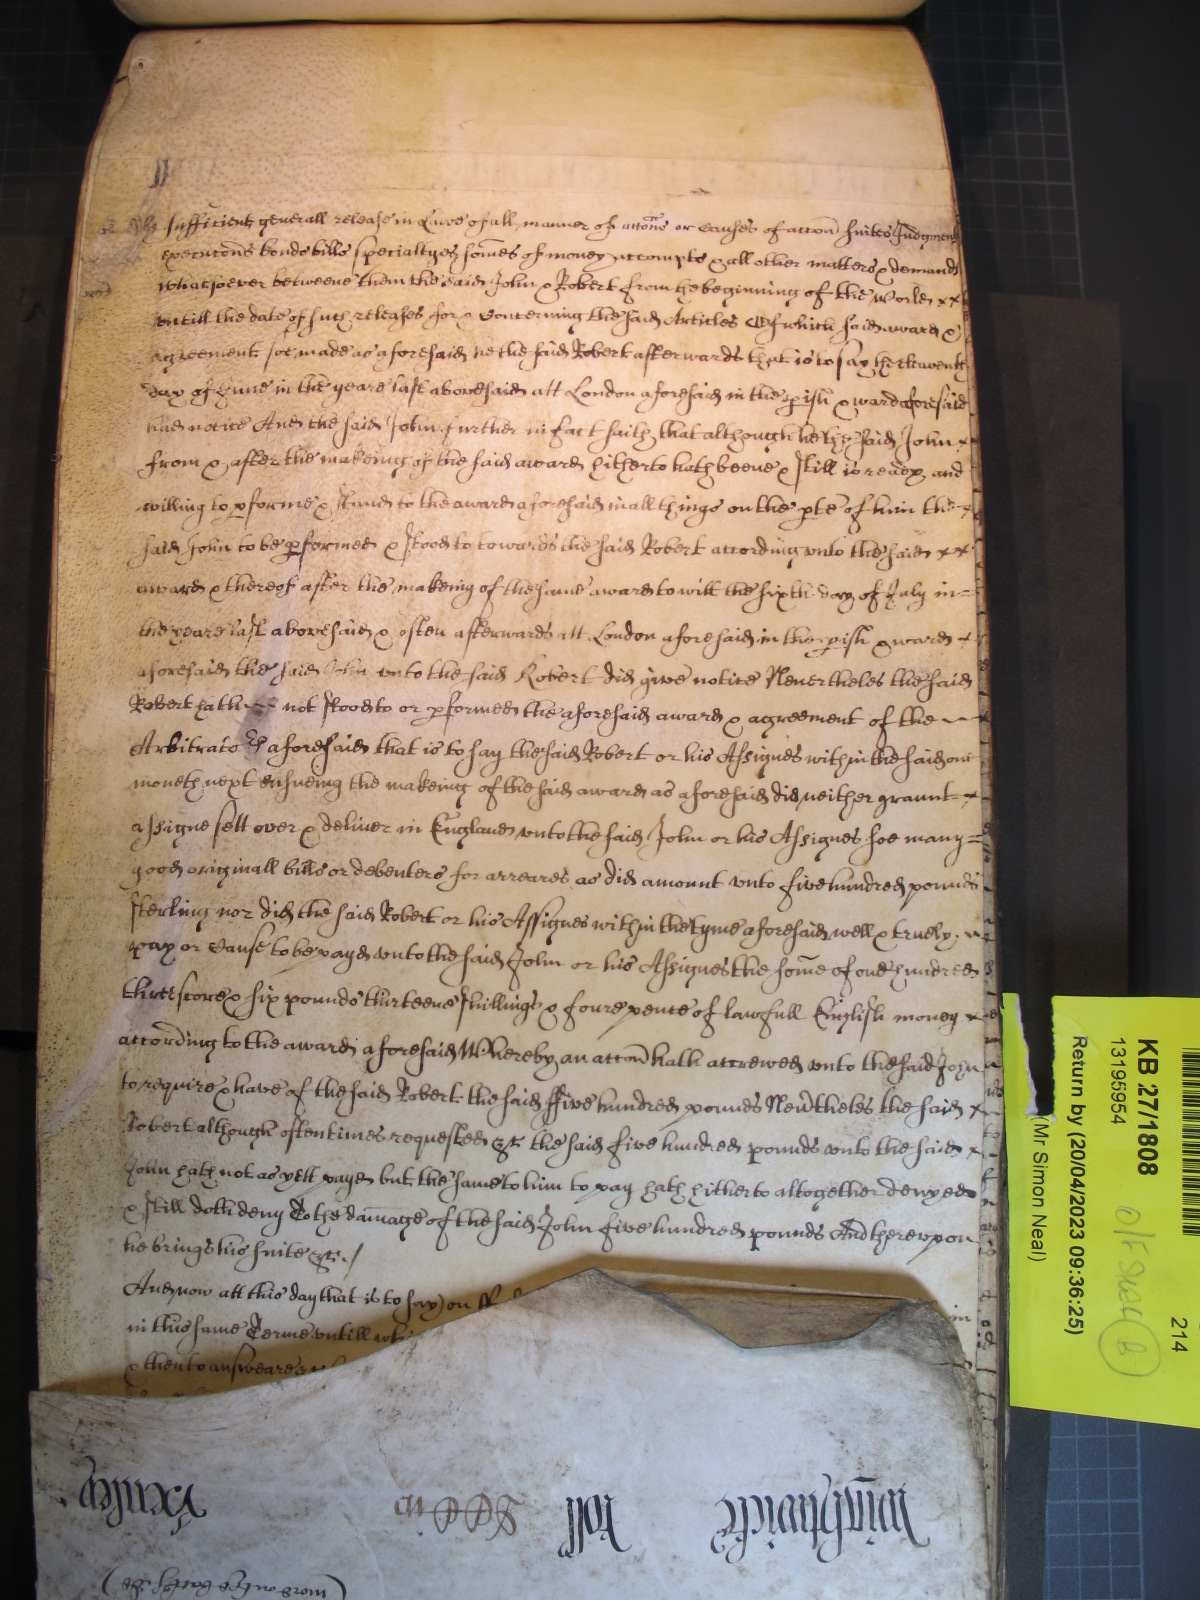 sufficient generall release in Lawe of all manner of accons or causes of accon suites Judgment
execucons bonds bills specialtyes somes of money accompts & all other matters & demands
whatsoever betweene them the said John & Robert from the beginning of the World
untill the date of such releases for & concerning the said Articles Of which said award &
agreement soe made as aforesaid he the said Robert afterwards that is to say the
day of June in the yeare last abovesaid att London aforesaid in the pish & ward aforesaid
had notice And the said John further in fact saith that although he the said John
from & after the makeing of the said award hitherto hath beene & still is ready and
willing to pforme & stand to the award aforesaid in all things on the pte of him the
said John to be pformed & stood to towards the said Robert according unto the said
award & thereof after the makeing of the same award to witt the sixth day of July in
the yeare last abovesaid & often afterwards att London aforesaid in the pish & ward
aforesaid the said John unto the said Robert did give notice Nevertheles the said
Robert hath not stood to or pformed the aforesaid award & agreement of the
Arbitrators aforesaid that is to say the said Robert or his Assignes within the said one
moneth next ensueing the makeing of the said award as aforesaid did neither graunt
assigne sett over & deliver in England unto the said John or his Assignes soe many
good originall bills or debenters for arreares as did amount unto five hundred pounds
sterling nor did the said Robert or his Assignes within the tyme aforesaid well & truely
pay or cause to be payd unto the said John or his Assignes the some of one hundred
threescore & six pounds thirteene shillings & foure pence of lawfull English money
according to the award aforesaid Whereby an accon hath accrewed unto the said John
to require & have of the said Robert the said ffive hundred pounds Nevtheles the said
Robert although oftentimes requested &c the said five hundred pounds unto the said
John hath not as yett payd but the same to him to pay hath hitherto altogether denyed
& still doth deny To the damage of the said John five hundred pounds And thereupon
he brings his suite &c./
And now att this day that is to say) on
in this same Terme untill in
& then to answeare
KB 27/1808
13195954
Return by (20/04/2023 09:36:25)
(Mr Simon Neal)
214
Wightwicke roll Henley